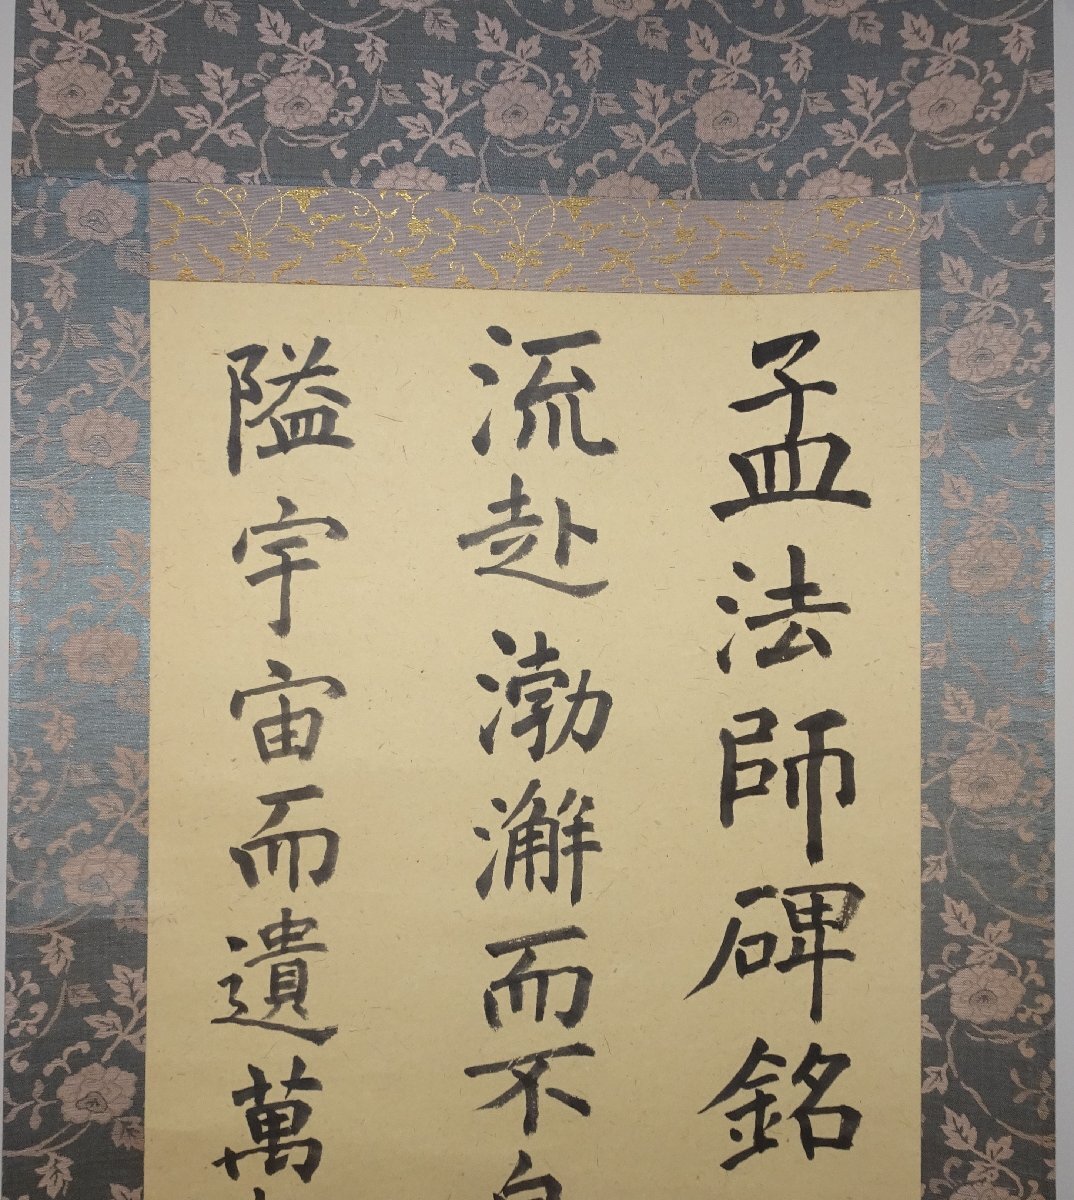 孟法師碑銘
流赴渤澥而不
隘宇宙而遺萬